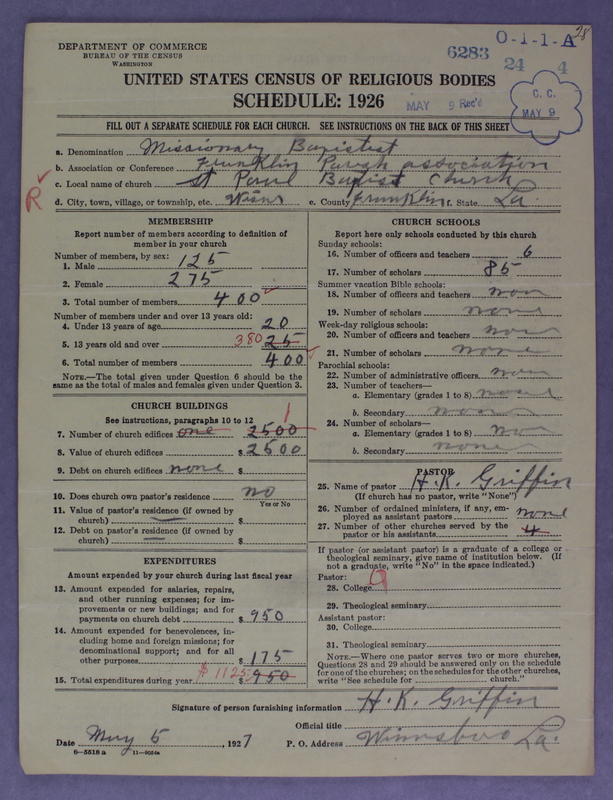 DEPARTMENT OF COMMERCE
BUREAU OF THE CENSUS
WASHINGTON
O-1-1-A 28
6283
24 4
UNITED STATES CENSUS OF RELIGIOUS BODIES
SCHEDULE: 1926
MAY 9 Rec'd
C. C.
MAY 9
FILL OUT A SEPARATE SCHEDULE FOR EACH CHURCH. SEE INSTRUCTIONS ON THE BACK OF THIS SHEET
a. Denomination Missionary Baptist
b. Association or Conference Franklin Parish association
c. Local name of church St Paul Baptist Church
R
d. City, town, village, or township, etc. Wisner e. County Franklin f. State La.
MEMBERSHIP
Report number of members according to definition of member in your church
Number of members, by sex:
1. Male 125
2. Female 275
3. Total number of members 400
Number of members under and over 13 years old:
4. Under 13 years of age 20
5. 13 years old and over 380 25
6. Total number of members 400
NOTE.—The total given under Question 6 should be the same as the total of males and females given under Question 3.
CHURCH BUILDINGS
See instructions, paragraphs 10 to 12
7. Number of church edifices one 2500 1
8. Value of church edifices $ 2500
9. Debt on church edifices none $
10. Does church own pastor's residence no
Yes or No
11. Value of pastor's residence (if owned by church) $
12. Debt on pastor's residence (if owned by church) $
EXPENDITURES
Amount expended by your church during last fiscal year
13. Amount expended for salaries, repairs, and other running expenses; for improvements or new buildings; and for payments on church debt $ 950
14. Amount expended for benevolences, including home and foreign missions; for denominational support; and for all other purposes 175
15. Total expenditures during year $ 1125 $ 950
CHURCH SCHOOLS
Report here only schools conducted by this church
Sunday schools:
16. Number of officers and teachers 6
17. Number of scholars 85
Summer vacation Bible schools:
18. Number of officers and teachers non
19. Number of scholars none
Week-day religious schools:
20. Number of officers and teachers non
21. Number of scholars none
Parochial schools:
22. Number of administrative officers non
23. Number of teachers—
a. Elementary (grades 1 to 8)
b. Secondary
24. Number of scholars—
a. Elementary (grades 1 to 8) non
b. Secondary none
PASTOR
25. Name of pastor H. K. Griffin
(If church has no pastor, write "None")
26. Number of ordained ministers, if any, employed as assistant pastors none
27. Number of other churches served by the pastor or his assistants 4
If pastor (or assistant pastor) is a graduate of a college or theological seminary, give name of institution below. (If not a graduate, write "No" in the space indicated.)
Pastor:
28. College
29. Theological seminary
Assistant pastor:
30. College
31. Theological seminary
NOTE.—Where one pastor serves two or more churches, Questions 28 and 29 should be answered only on the schedule for one of the churches; on the schedules for the other churches, write "See schedule for church."
Signature of person furnishing information H. K. Griffin
Official title
Date May 5, 1927 P. O. Address Winnsboro La.
6-5518 a 11-9054a